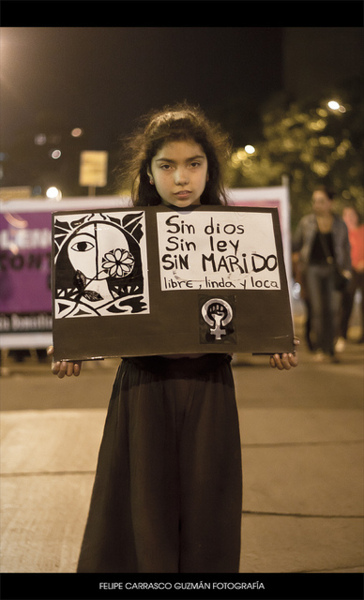 Sin dios
Sin ley
SIN MARIDO
libre, linda y loca
FELIPE CARRASCO GUZMÁN FOTOGRAFÍA